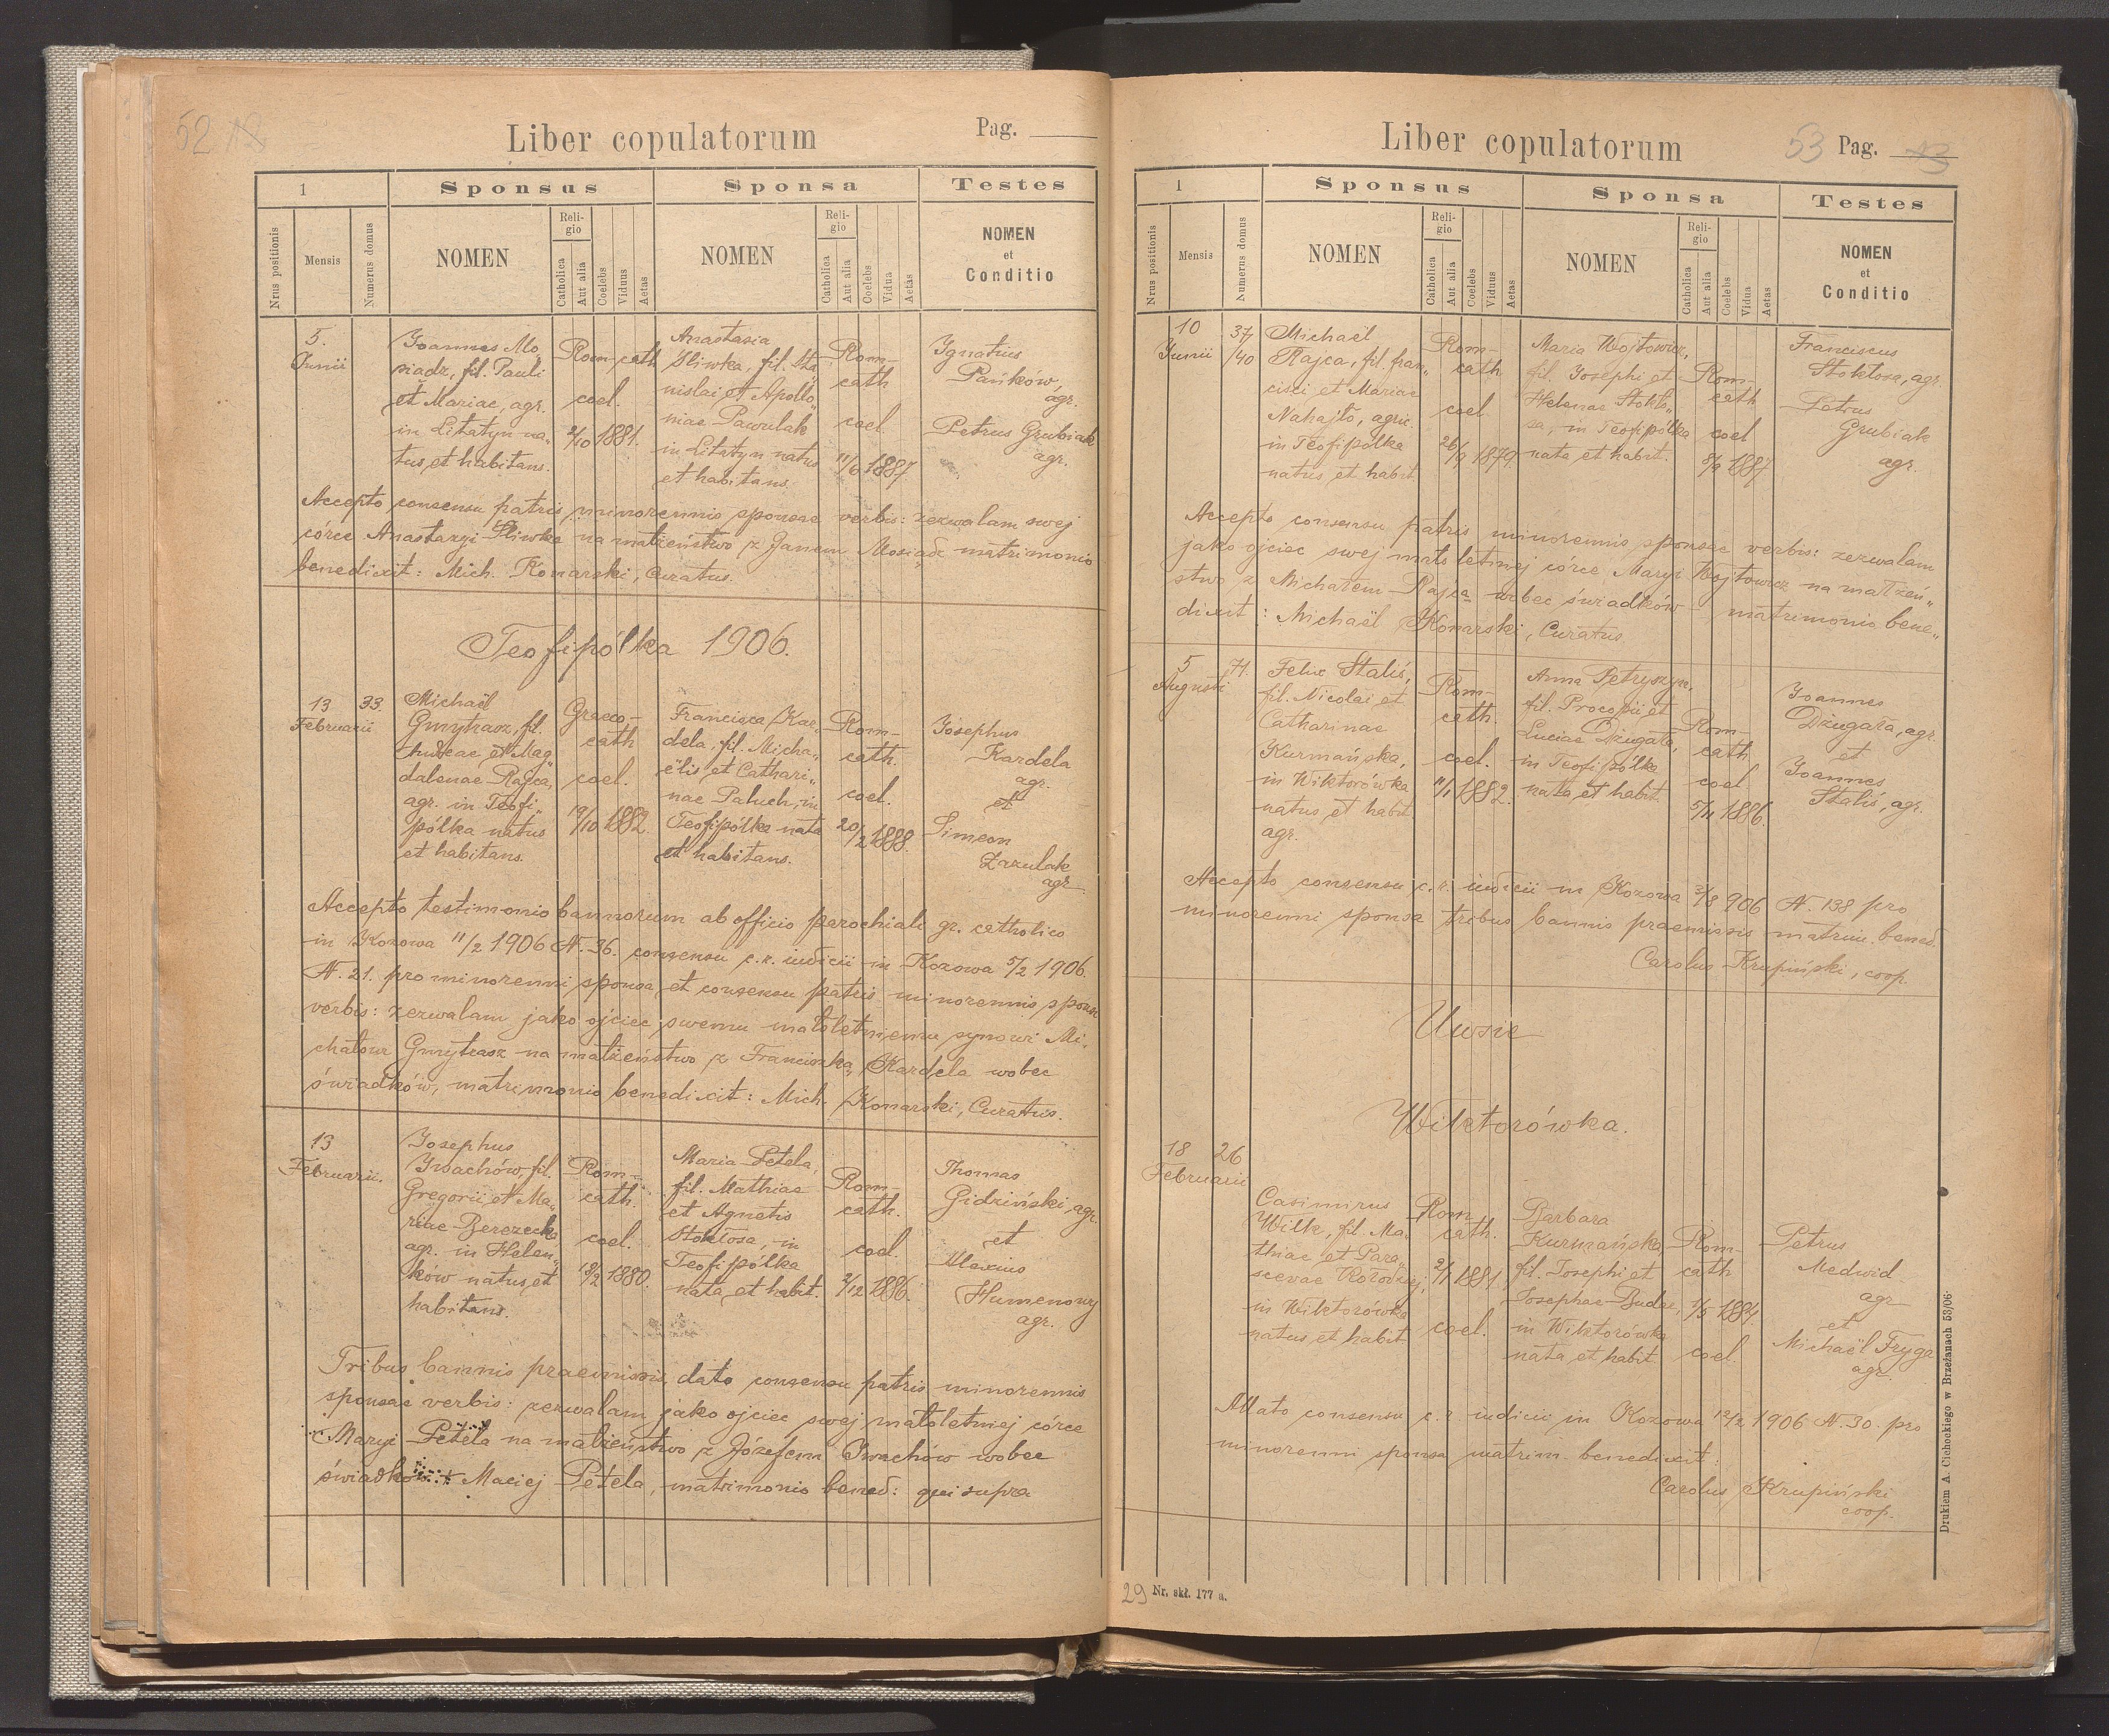 52 12
Liber copulatorum
Pag.
1
Sponsus
Sponsa
Testes
Nrus positionis
Mensis
Numerus domus
NOMEN
Religio
Catholica
Aut alia
Coelebs
Viduus
Aetas
NOMEN
Religio
Catholica
Aut alia
Coelebs
Vidua
Aetas
NOMEN
et
Conditio
5.
Junii
Joannes Mo„
siadz, fil. Pauli
et Mariae, agr.
in Litatyn na„
tus, et habitans.
Rom-cath
coel.
2/10 1881.
Anastasia
Śliwka, fil. Sta„
nislai et Apollo„
niae Pawulak
in Litatyn natus
et habitans.
Rom-
cath
coel
11/6 1887
Ignatius
Pańków,
agr.
Petrus Grubiak
agr.
Accepto consensu patris minorennis sponsae verbis: zezwalam swej
córce Anastazyi Śliwka na małżeństwo z Janem Mosiądz matrimonio
benedixit: Mich. Konarski, Curatus.
Teofipólka 1906.
13
Februarii
33.
Michaël
Gmytrasz, fil.
Andreae et Mag„
dalenae Rajca,
agr. in Teofi„
pólka natus
et habitans.
Graeco-
cath
coel.
19/10 1882.
Francisca Kar„
dela, fil. Micha„
ëlis et Cathari„
nae Paluch, in
Teofipólka nata
et habitans.
Rom-
cath.
coel.
20/2 1888.
Josephus
Kardela
agr.
et
Simeon
Zazulak
agr.
Accepto testimonio bannorum ab officio parochiali gr. catholico
in Kozowa 11/2 1906 N. 36. consensu c.r. iudicii in Kozowa 5/2 1906.
N. 21. pro minorenni sponsa et consensu patris minorennis sponsi
verbis: zezwalam jako ojciec swemu małoletniemu synowi Mi„
chałowi Gmytrasz na małżeństwo z Franciszką Kardela wobec
świadków, matrimonio benedixit: Mich. Konarski, Curatus.
13
Februarii.
Josephus
Iwachów, fil.
Gregorii et Ma„
riae Berezecka
agr. in Helen„
ków natus, et
habitans.
Rom-
cath.
coel.
19/2 1880.
Maria Petela,
fil. Mathiae
et Agnetis
Stokłosa, in
Teofipólka
nata et habit.
Rom-
cath.
coel.
2/12 1886.
Thomas
Gidziński, agr.
et
Alexius
Humenowy
agr.
Tribus bannis praemissis, dato consensu patris minorennis
sponsae verbis: zezwalam jako ojciec swej małoletniej córce
Maryi Petela na małżeństwo z Józefem Iwachów wobec
świadków + Maciej Petela, matrimonio bened: qui supra
Liber copulatorum
53 Pag. 13
1
Sponsus
Sponsa
Testes
Nrus positionis
Mensis
Numerus domus
NOMEN
Religio
Catholica
Aut alia
Coelebs
Viduus
Aetas
NOMEN
Religio
Catholica
Aut alia
Coelebs
Vidua
Aetas
NOMEN
et
Conditio
10
Junii
37
/40
Michaël
Rajca, fil. Fran„
cisci et Mariae
Nahajło, agric.
in Teofipólka
natus, et habit.
Rom-
cath
coel
26/9 1879.
Maria Wojtowicz,
fil. Josephi et
Helenae Stokło„
sa, in Teofipólka
nata et habit.
Rom-
cath
coel
8/9 1887
Franciscus
Stokłosa, agr.
Petrus
Grubiak
agr.
Accepto consensu patris minorennis sponsae verbis: zezwalam
jako ojciec swej małoletniej córce Maryi Wojtowicz na małżeń„
stwo z Michałem Rajcą wobec świadków – matrimonio bene„
dixit: Michaël Konarski, Curatus.
5
Augusti
71.
Felix Staliś,
fil. Nicolai et
Catharinae
Kurmańska,
in Wiktorówka
natus et habit
agr.
Rom-
cath.
coel.
11/1 1882.
Anna Petryszyn,
fil. Procopii et
Luciae Dżugała,
in Teofipólka
nata et habit.
Rom-
cath
coel
5/11 1886.
Joannes
Dżugała, agr.
et
Joannes
Staliś, agr.
Accepto consensu c.r. iudicii in Kozowa 3/8 906 N. 138 pro
minorenni sponsa tribus bannis praemissis matrim. bened.
Carolus Krupiński, coop.
Uwsie
Wiktorówka.
18
Februarii
26
Casimirus
Wilk, fil. Ma„
thiae et Para„
scevae Kołodziej,
in Wiktorówka
natus et habit
Rom
cath.
2/1 1881.
coel.
Barbara
Kurmańska,
fil. Josephi et
Josephae Budae,
in Wiktorówka
nata et habit.
Rom-
cath
1/5 1884.
coel.
Petrus
Medwid
agr
et
Michaël Fryga
agr.
Allato consensu c.r. iudicii in Kozowa 12/2 1906 N. 30. pro
minorenni sponsa matrim. benedixit:
Carolus Krupiński
coop.
Drukiem A. Cichockiego w Brzeżanach 53/06.
29 Nr. skł. 177 a.